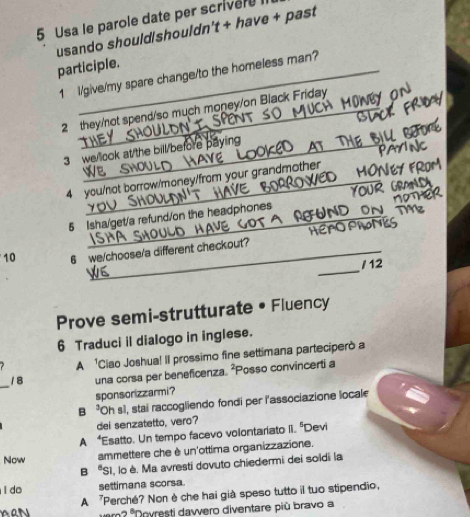 5 Usa le parole date per scrivere
usando should/shouldn't + have + past
participle.
1 I/give/my spare change/to the homeless man?
2 they/not spend/so much money/on Black Friday
THEY SHOULDN'T HAVE SPENT SO MUCH MONEY ON BLACK FRIDAY
3 we/look at/the bill/before paying
WE SHOULD HAVE LOOKED AT THE BILL BEFORE PAYING
4 you/not borrow/money/from your grandmother
YOU SHOULDN'T HAVE BORROWED MONEY FROM YOUR GRANDMOTHER
5 Isha/get/a refund/on the headphones
ISHA SHOULD HAVE GOT A REFUND ON THE HEADPHONES
10
6 we/choose/a different checkout?
WE
/ 12
Prove semi-strutturate • Fluency
6 Traduci il dialogo in inglese.
A ¹Ciao Joshua! Il prossimo fine settimana parteciperò a
/ 8
una corsa per beneficenza. ²Posso convincerti a
sponsorizzarmi?
B ³Oh sì, stai raccogliendo fondi per l'associazione locale
dei senzatetto, vero?
A ⁴Esatto. Un tempo facevo volontariato lì. ⁵Devi
Now
ammettere che è un'ottima organizzazione.
B ⁶Sì, lo è. Ma avresti dovuto chiedermi dei soldi la
I do
settimana scorsa.
A ⁷Perché? Non è che hai già speso tutto il tuo stipendio,
vero? ⁸Dovresti davvero diventare più bravo a